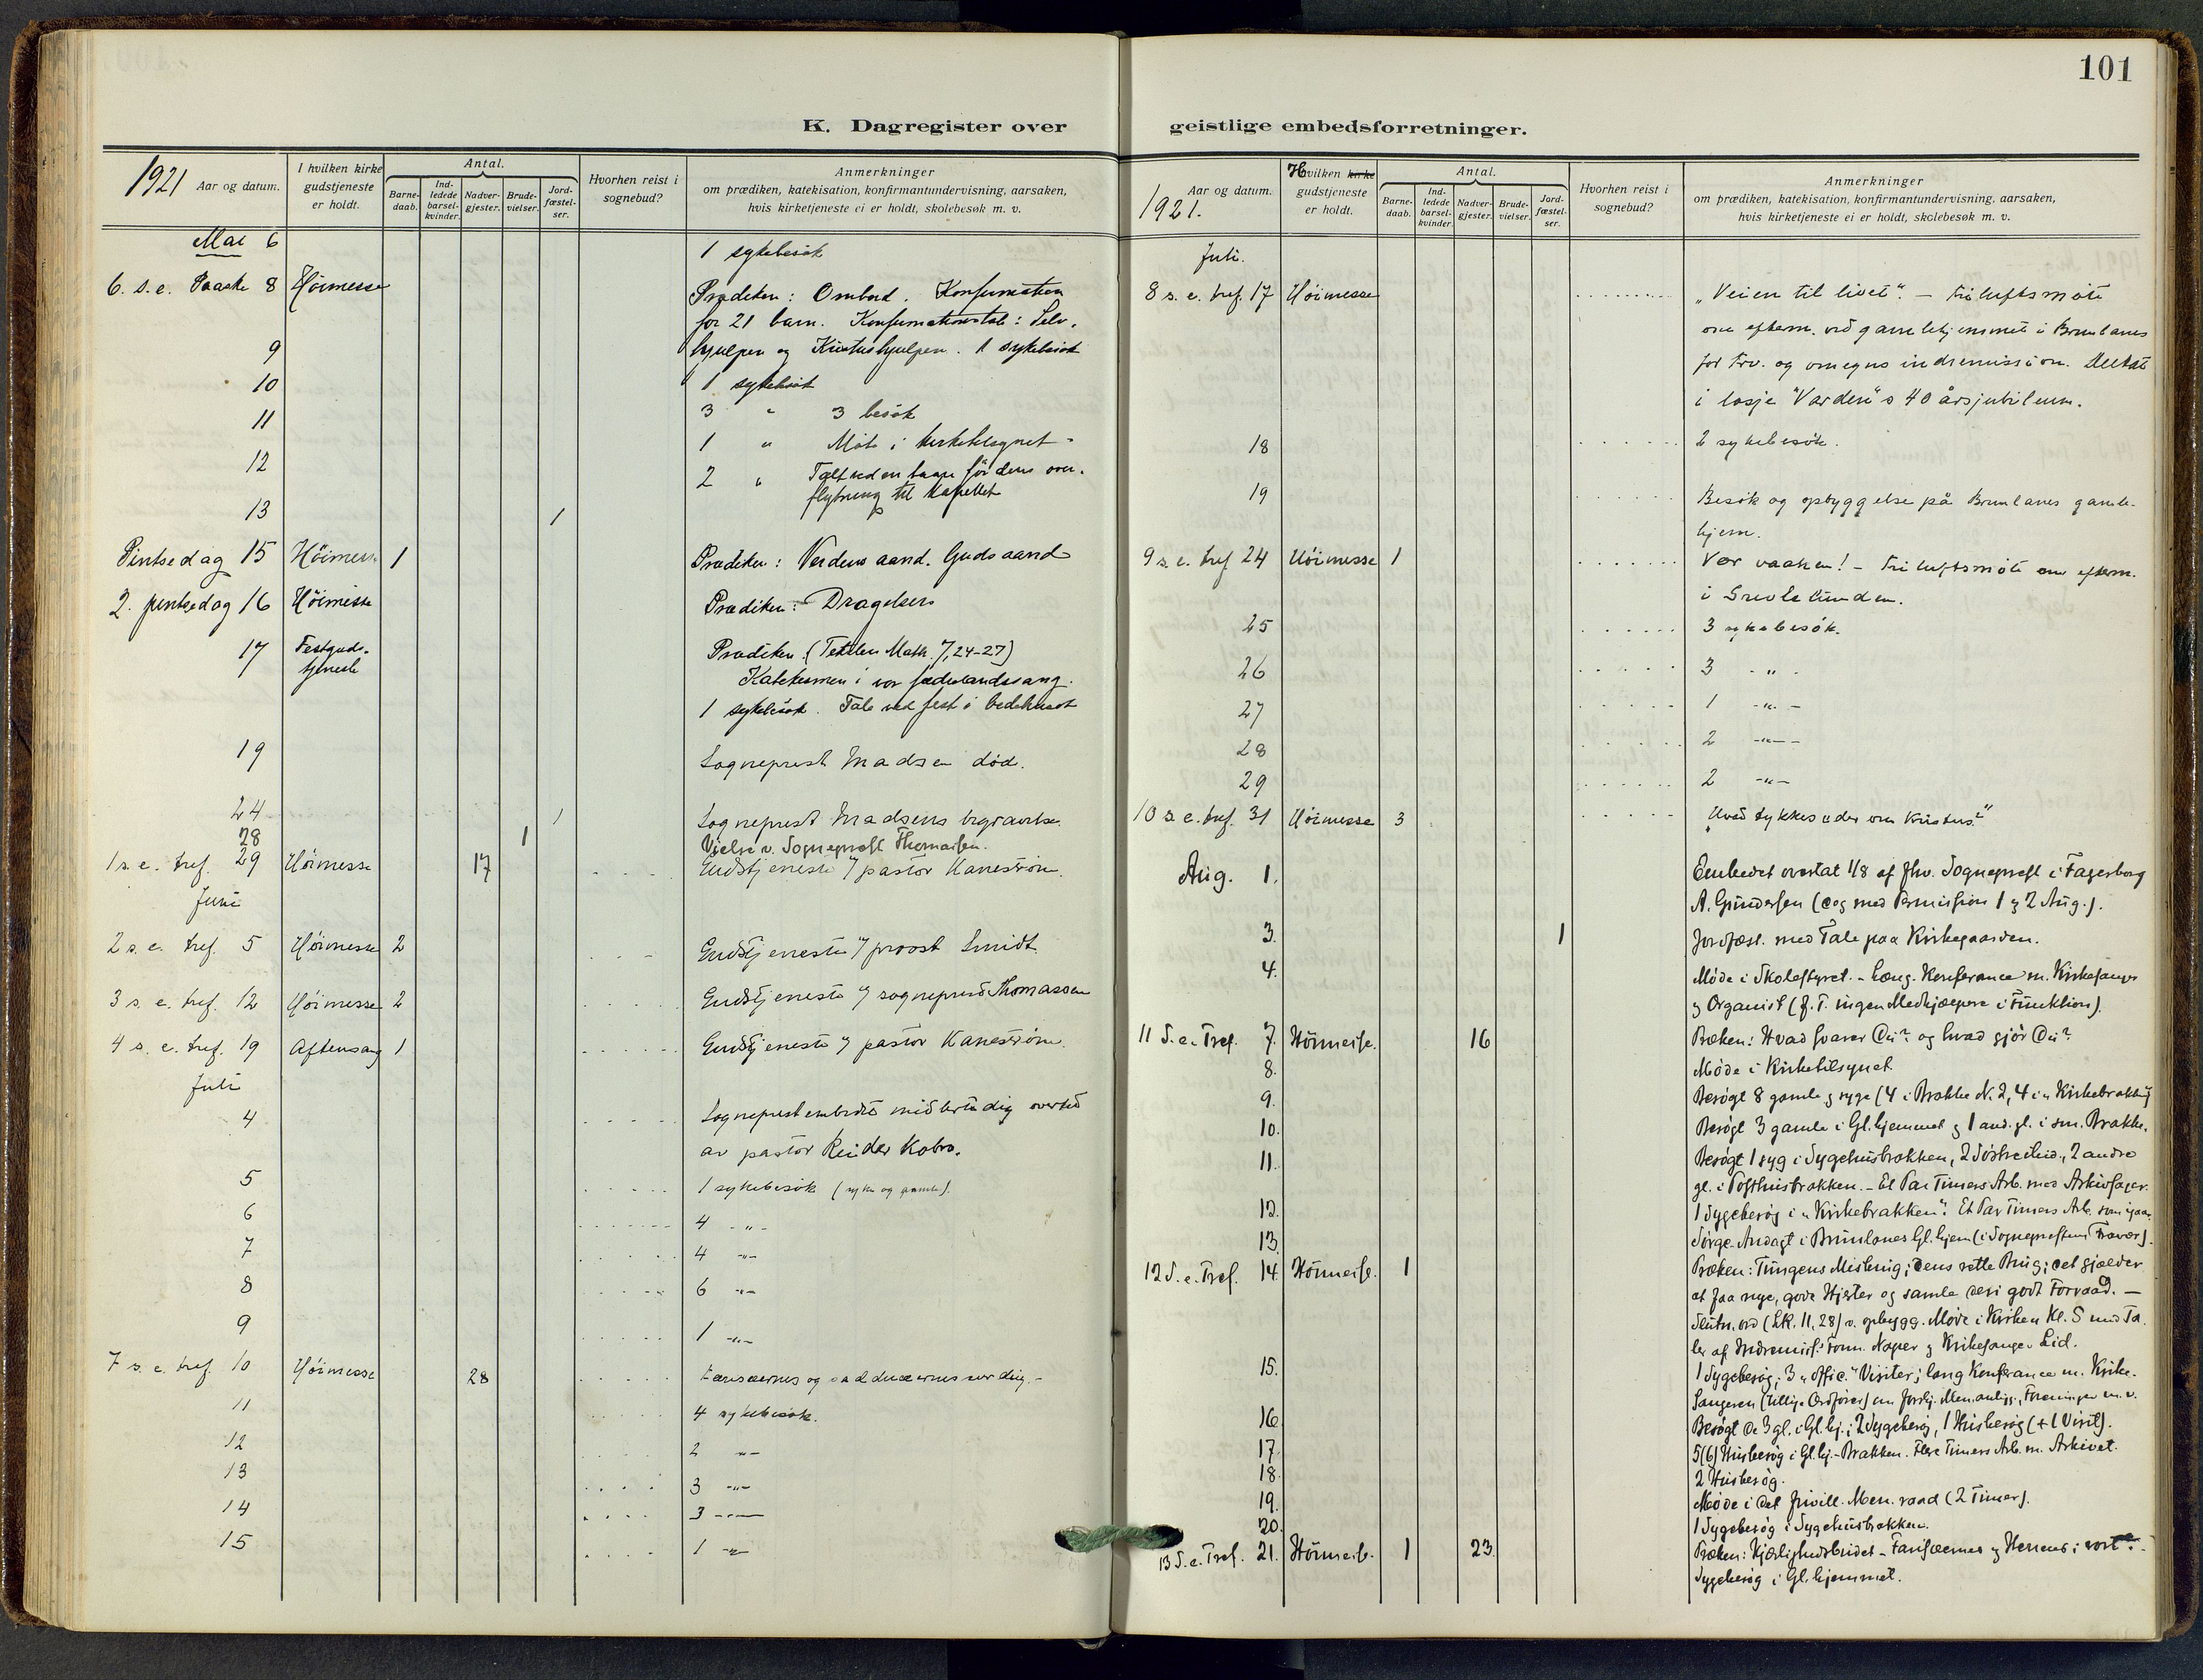 101
K. Dagregister over geistlige embedsforretninger.
1921 Aar og datum.
I hvilken kirke gudstjeneste er holdt.
Antal.
Barne-daab.
Ind-ledede barsel-kvinder.
Nadver-gjester.
Brude-vielser.
Jord-fæstel-ser.
Hvorhen reist i sognebud?
Anmerkninger
om prædiken, katekisation, konfirmantundervisning, aarsaken,
hvis kirketjeneste ei er holdt, skolebesøk m. v.
Mai 6 1 sykebesök
6. s.e. Paaske 8 Höimesse Prædiken: Ombord. Konfirmation
for 21 barn. Konfirmationstale: Selv-
hjulpen og Kristushjulpen. 1 sykebesök
9 1 sykebesök
10 3 " 3 besök
11 1 " Möte i kirketilsynet
12 2 "
flytning til kapellet
13 1
Pintsedag 15 Höimesse 1 Prædiken: Verdens aand. Guds aand
2. pintsedag 16 Höimesse Prædiken: Dragelsen
17 Festguds-
tjeneste Prædiken (Teksten Math. 7,24-27)
i vor fædrelandssang.
1 sykebesök. Tale ved fest i bedehuset
19 Sogneprest Madsen död.
24 1 Sogneprest Madsens begravelse.
28 1 Vielse v. Sogneprest Thomassen.
1 s. e. tref. 29 Höimesse 17 Gudstjeneste v/ pastor Kaneström.
Juni
2 s. e. tref. 5 Höimesse 2 Gudstjeneste v/ provst Smidt
3 s. e. tref. 12 Höimesse 2 Gudstjeneste v/ sogneprest Thomassen
4 s. e. tref. 19 Aftensang 1 Gudstjeneste v/ pastor Kaneström.
Juli
4 Sogneprestembedet midlertidig overtad
av pastor Reidar Kobro.
5 1 sykebesök (syke og gamle).
6 4 -"-
7 4 -"-
8 6 -"-
9 1 -"-
7 s. e. tref. 10 Höimesse 28 Farisæernes og sadducæernes surdeig.-
11 4 sykebesök.
12 2 -"-
13 3 -"-
14 3 -"-
15 1 -"-
1921. Aar og datum.
Hvilken kirke gudstjeneste er holdt.
Antal.
Barne-daab.
Ind-ledede barsel-kvinder.
Nadver-gjester.
Brude-vielser.
Jord-fæstel-ser.
Hvorhen reist i sognebud?
Anmerkninger
om prædiken, katekisation, konfirmantundervisning, aarsaken,
hvis kirketjeneste ei er holdt, skolebesøk m. v.
Juli.
8 s. e. tref. 17 Höimesse "Veien til livet". - Friluftsmöte
om efterm. ved gamlehjemmet i Brunlanes
for Lrv. og omegns indremission. Deltat
i losje "Varden"s 40 årsjubileum.
18 2 sykebesök.
19 Besök og opbyggelse på Brunlanes gamle-
hjem.
9 s. e. tref. 24 Höimesse 1 Vær vaaken! - Friluftsmöte om efterm.
i
25 3 sykebesök.
26 3 -"-
27 1 -"-
28 2 -"-
29 2 -"-
10 s. e. tref. 31 Höimesse 3 "Hvad tykkes eder om Kristus?"
Aug. 1. Embedet overtat 1/8 af fhv. Sogneprest i Fagerborg
A. Gundersen (dog med Permission 1 og 2 Aug.).
3. 1 Jordfæst. med Tale paa Kirkegaarden.
4. Møde i Skolestyret. - Læng. Konferance m. Kirkesanger
og Organist (f. T. ingen Medhjælpere i Funktion).
11 S. e. Tref. 7. Höimesse. 16 Præken: Hvad svarer Du? og hvad gjör Du?
8. Møde i Kirketilsynet
9. Besøgt 8 gamle og syge (4 i Brakke N. 2, 4 i "Kirkebrakken")
10. Besøgt 3 gamle i Gl. hjemmet og 1 and. gl. i sm. Brakke.
11. Besøgt 1 syg i Sygehusbrakken, 2 andre
gl. i Posthusbrakken. - Et Par Timers Arb. med Arkivsager.
12. 1 Sygebesøg i "Kirkebrakken". Et Par Timers Arb. som igaar.
13. Sørge-Andagt i Brunlanes Gl. hjem (i Sogneprestens Fravær).
12 S. e. Tref. 14. Höimesse. 1 Præken: Tungens Misbrug; dens rette Brug; det gjælder
at faa nye, gode Hjerter og samle deri godt Forraad. -
Slutn. ord (Lk. 11, 28) v. opbygg. Møde i Kirken Kl. 5 med Ta-
ler af Indremis. Form. Naper og Kirkesanger Lid.
15. 1 Sygebesøg; 3 "offic." Visiter; lang Konferance m. Kirke-
sangeren (tillige Ordfører) om forskj. Men. anligg., Foreninger m. v.
16. Besøgt de 3 gl. i Gl. hj.; 2 Sygebesøg, 1 Husbesøg (+ 1 Visit).
17. 5(6) Husbesøg i Gl. hj.-Brakken. Flere Timers Arb. m. Arkivet.
18. 2 Husbesøg.
19. Møde i det frivill. Men. raad (2 Timer).
20. 1 Sygebesøg i Sygehusbrakken.
13 S. e. Tref. 21. Höimesse. 1 23. Præken: Kjærlighedsbudet - Farisæernes og Herrens i vort.
Sygebesøg i Gl. hjemmet.